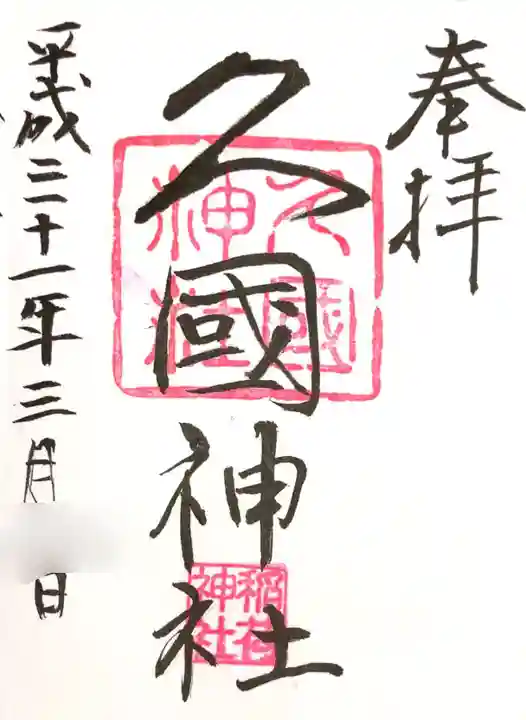 奉拝
久國神社
久國
神社
稲荷
神社
平成三十一年三月
日